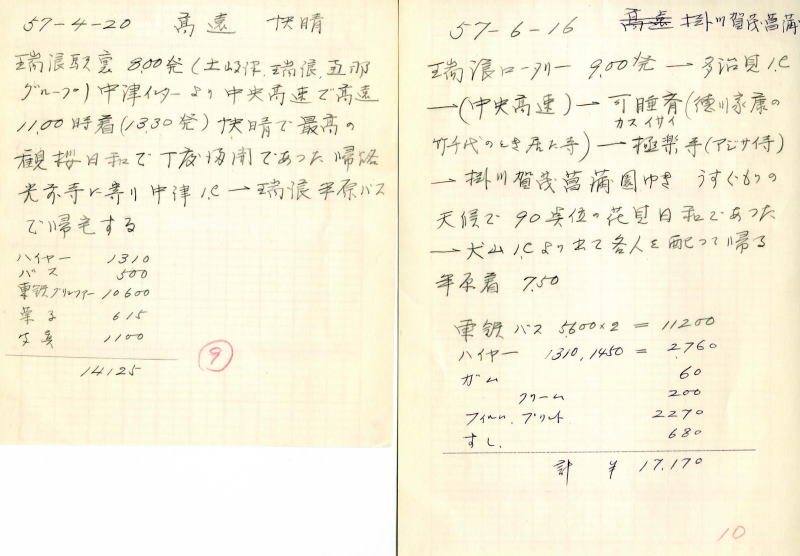 57-4-20 高遠 快晴
瑞浪駅裏 8.00発(土岐津.瑞浪.五郡
グループ)中津インターより中央高速で高遠
11.00時着(1330発) 快晴で最高の
観桜日和で丁度満開であつた 帰路
光前寺に寄り 中津 I.C → 瑞浪 半原バス
で帰宅する
ハイヤー 1310
バス 500
東鉄グリーンツアー 10600
菓子 615
写真 1100
14125
9
57-6-16 高遠 掛川賀茂菖蒲
瑞浪ロータリー 9.00発 → 多治見 I.C
→(中央高速)→ 可睡斎(徳川家康の
カスイサイ
竹千代のとき居た寺)→ 極楽寺(アジサイ寺)
→ 掛川賀茂菖蒲園ゆき うすぐもりの
天候で 90点位の花見日和であつた
→ 犬山 I.Cより出て各人を配つて帰る
半原着 7.50
東鉄 バス 5.600×2 = 11200
ハイヤー 1310,1450 = 2.760
ガム 60
クリーム 200
フィルム.プリント 2270
すし. 680
計 ¥ 17.170
10